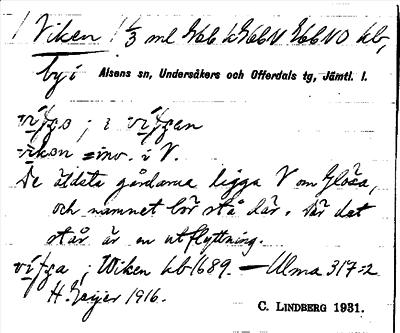 Viken 1 1/3 ml
by i Alsens sn, Undersåkers och Offerdals tg, Jämtl. l.
; i
= inv. i V.
De äldsta gårdarna ligga V om Glösa,
och namnet bör stå där. Där det
står är en utflyttning.
; Wiken kb 1689. — Ulma 317:2
H. Geijer 1916.
C. LINDBERG 1931.